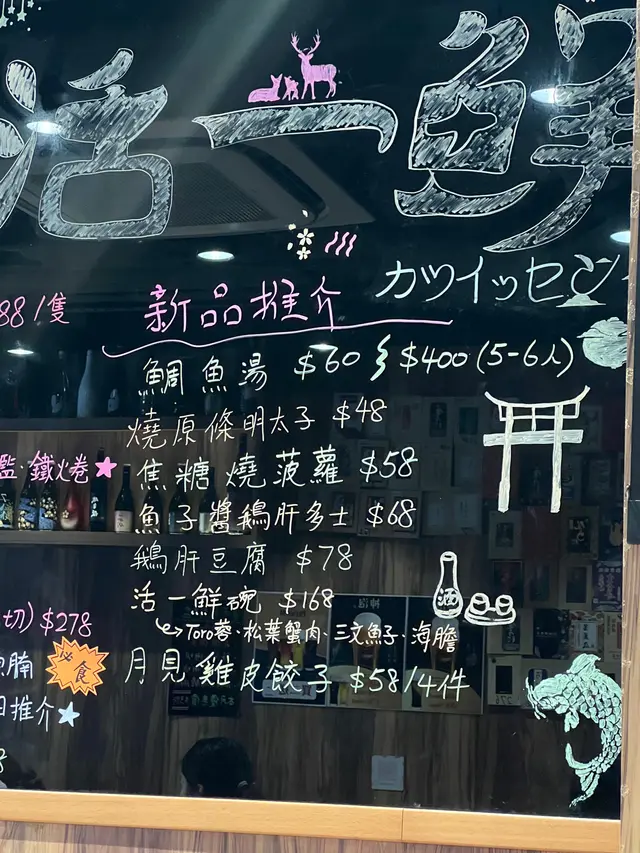 活一鮮
カツイッセン
88/隻
新品推介
鯛魚湯 $60 ⌇ $400 (5-6人)
燒原條明太子 $48
焦糖燒菠蘿 $58
魚子醬鵝肝多士 $68
鵝肝豆腐 $78
活一鮮碗 $168
↳Toro蓉、松葉蟹肉、三文魚子、海膽
月見雞皮餃子 $58/4件
鐵火卷★
切) $278
腩 必食
推介☆
酒